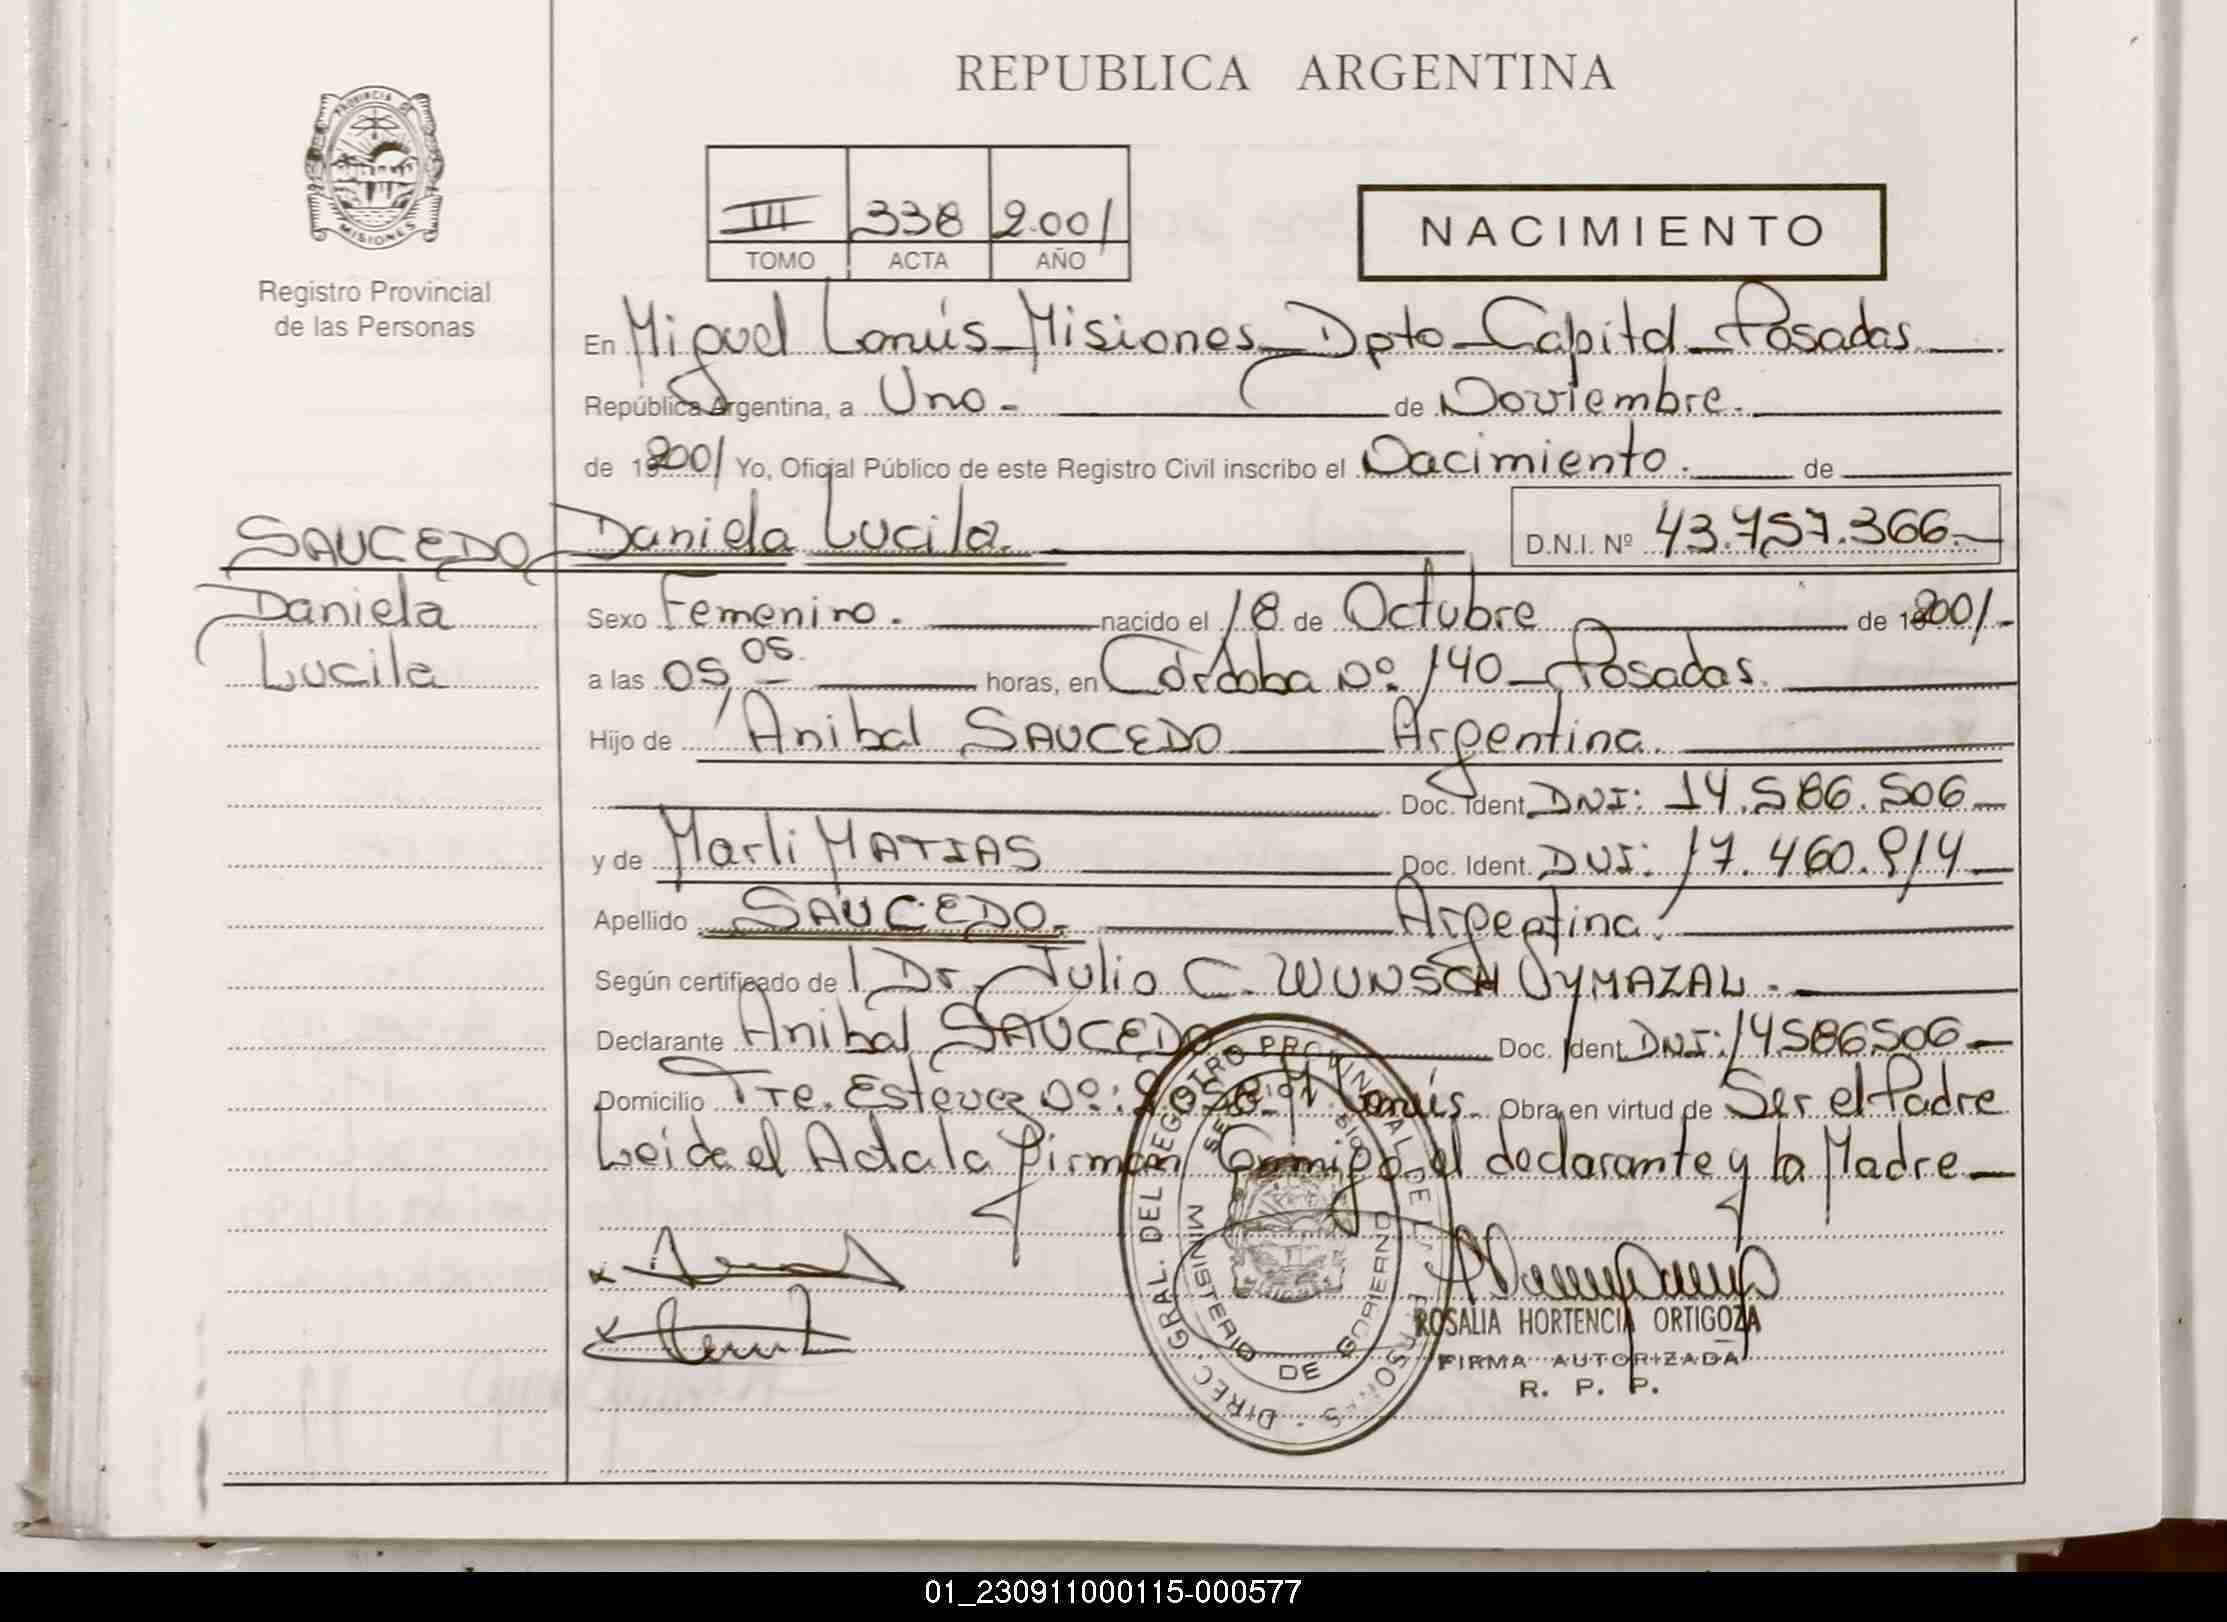 REPUBLICA ARGENTINA
PROVINCIA DE
MISIONES
Registro Provincial
de las Personas
III 338 2.001
TOMO ACTA AÑO
NACIMIENTO
En Miguel Lanús_Misiones_Dpto_Capital_Posadas.
República Argentina, a Uno.- de Noviembre.
de 2001 Yo, Oficial Público de este Registro Civil inscribo el Nacimiento. de
SAUCEDO Daniela Lucila. D.N.I. Nº 43.757.366.-
Daniela
Lucila
Sexo Femenino. nacido el 18 de Octubre de 2001.-
a las 05,05.- horas, en Córdoba Nº 140_Posadas.
Hijo de Anibal SAUCEDO Argentina.
Doc. Ident. DNI: 14.586.506
y de Marli MATIAS Doc. Ident. DNI: 17.460.914
Apellido SAUCEDO.- Argentina.
Según certificado de Dr. Julio C. WUNSCH UYMAZAL.-
Declarante Anibal SAUCEDO Doc. Ident. DNI: 14586506
Domicilio Tte. Estevez Nº: M Lanús. Obra en virtud de Ser el Padre
Leida el Acta la firman Conmigo el declarante y la Madre
DIREC. GRAL. DEL REGISTRO PROVINCIAL DE LAS PERSONAS
MINISTERIO DE GOBIERNO
ROSALIA HORTENCIA ORTIGOZA
FIRMA AUTORIZADA
R. P. P.
01_230911000115-000577